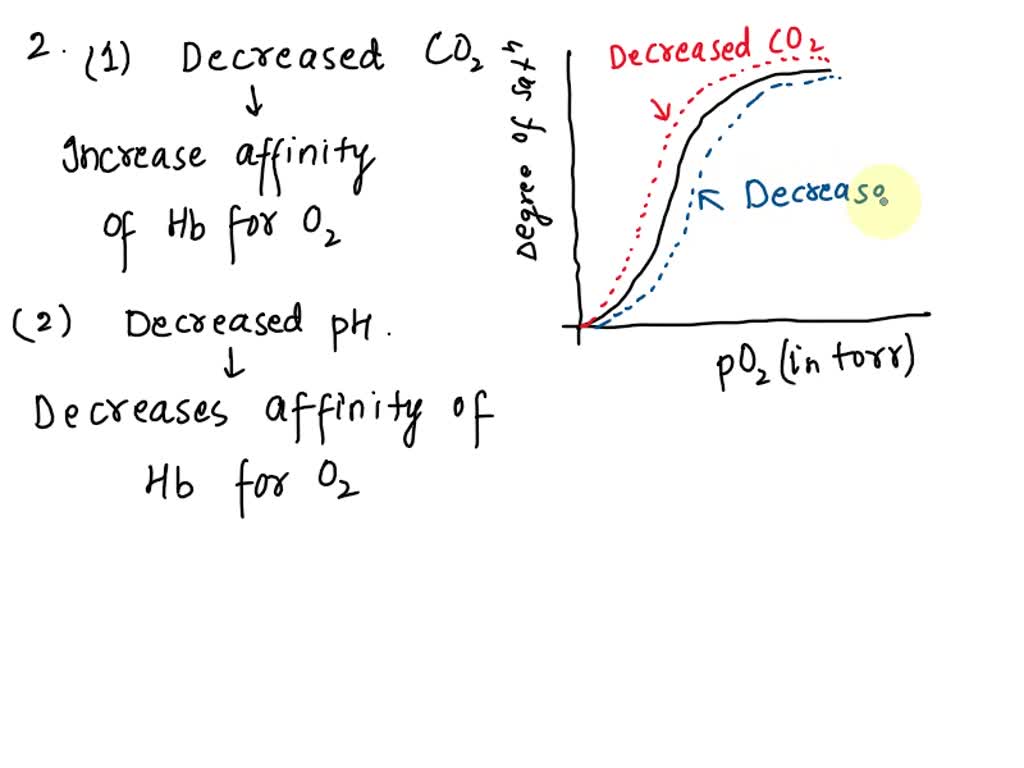 2. (1) Decreased CO₂
↓
Increase affinity
of Hb for O₂
(2) Decreased pH.
↓
Decreases affinity of
Hb for O₂
Decreased CO₂
Degree of satⁿ
Decrease
pO₂ (in torr)